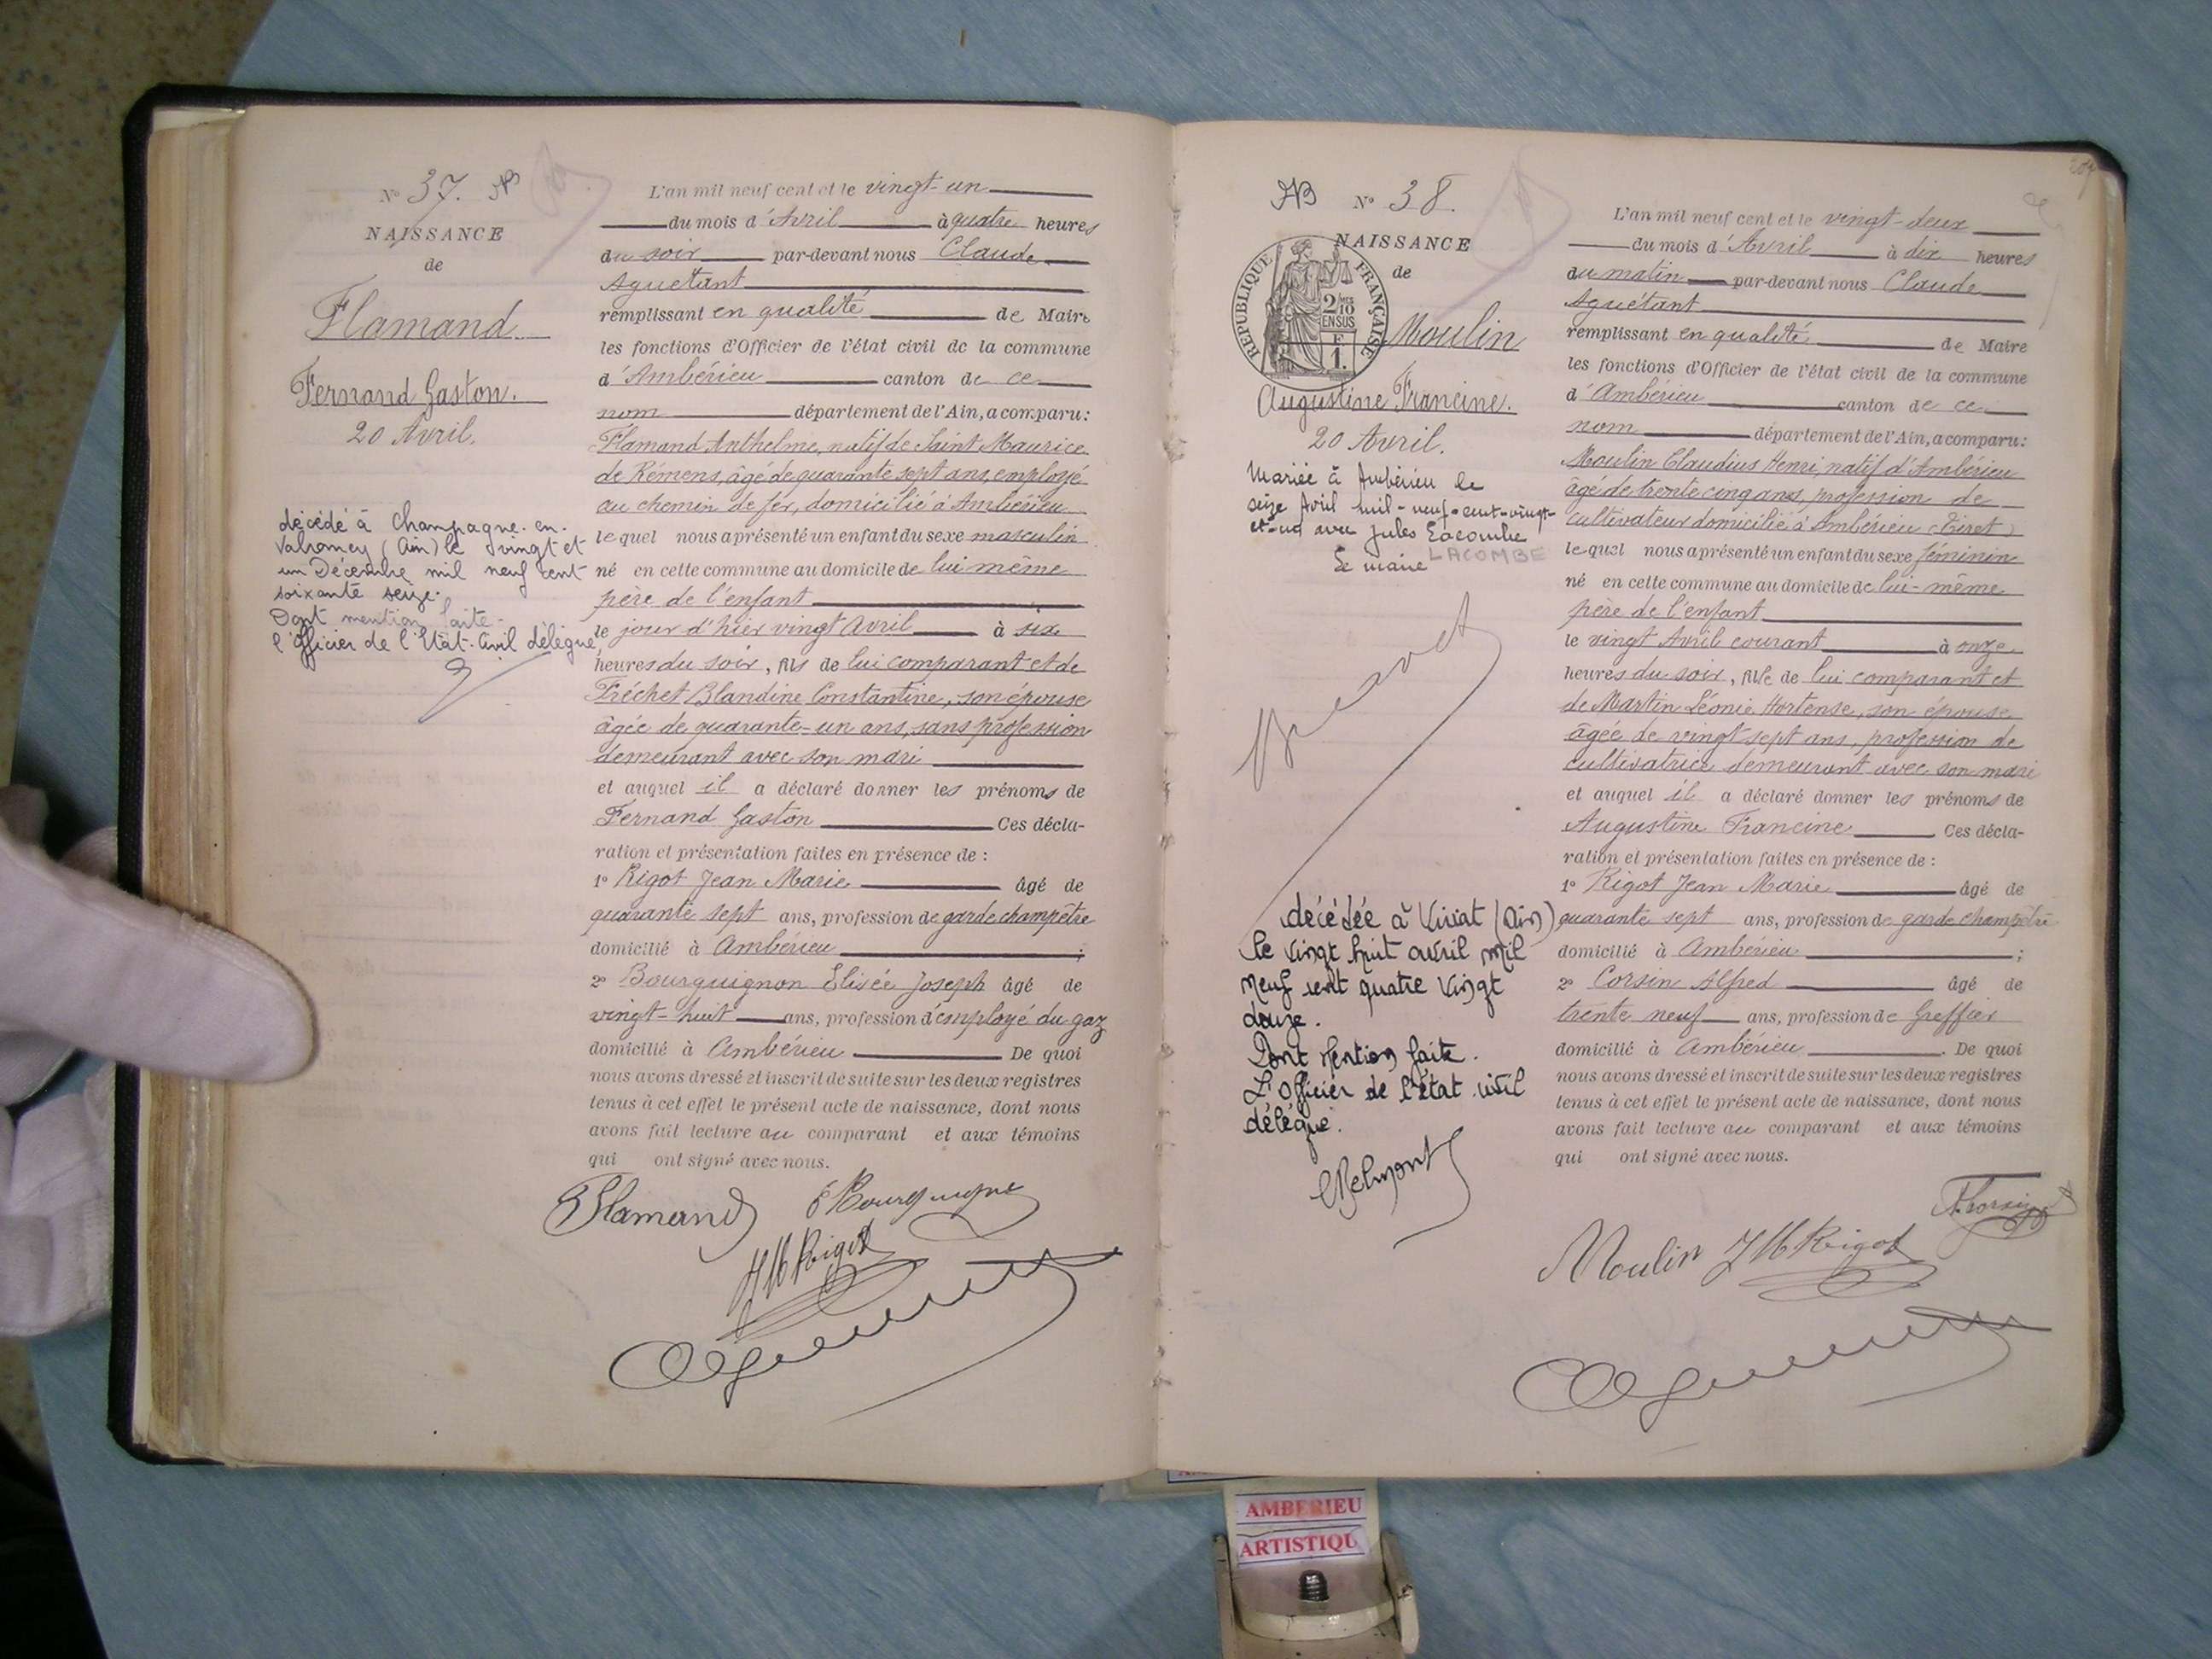 N° 37.
NAISSANCE
de
Flamand
Fernand Gaston.
20 Avril.
décédé à Champagne-en-
Valromey (Ain) le vingt et
un Décembre mil neuf cent
soixante seize.
Dont mention faite-
l'Officier de l'Etat-Civil délégué,
L'an mil neuf cent et le vingt-un
du mois d'Avril à quatre heures
du soir par-devant nous Claude
Aguétant
remplissant en qualité de Maire
les fonctions d'Officier de l'état civil de la commune
d'Ambérieu canton de ce
nom département de l'Ain, a comparu:
Flamand Anthelme, natif de Saint Maurice
de Rémens, âgé de quarante sept ans, employé
au chemin de fer, domicilié à Ambérieu
lequel nous a présenté un enfant du sexe masculin
né en cette commune au domicile de lui même
père de l'enfant
le jour d'hier vingt Avril à six
heures du soir, fils de lui comparant et de
Fréchet Blandine Constantine, son épouse
âgée de quarante-un ans, sans profession
demeurant avec son mari
et auquel il a déclaré donner les prénoms de
Fernand Gaston Ces décla-
ration et présentation faites en présence de :
1° Rigot Jean Marie âgé de
quarante sept ans, profession de garde champêtre
domicilié à Ambérieu ;
2° Bourguignon Elisée Joseph âgé de
vingt-huit ans, profession d'employé du gaz
domicilié à Ambérieu De quoi
nous avons dressé et inscrit de suite sur les deux registres
tenus à cet effet le présent acte de naissance, dont nous
avons fait lecture au comparant et aux témoins
qui ont signé avec nous.
Flamand E Bourguignon
JM Rigot
C Aguétant
N° 38.
NAISSANCE
de
REPUBLIQUE FRANÇAISE
2/10
EN SUS
F.
1.
Moulin
Augustine Francine.
20 Avril.
Mariée à Ambérieu le
seize Avril mil-neuf-cent-vingt-
et-un avec Jules Lacombe
LACOMBE
Le maire
décédée à Viriat (Ain)
le vingt huit avril mil
neuf cent quatre vingt
douze.
Dont mention faite.
L'Officier de l'état civil
délégué.
L'an mil neuf cent et le vingt-deux
du mois d'Avril à dix heures
du matin par-devant nous Claude
Aguétant
remplissant en qualité de Maire
les fonctions d'Officier de l'état civil de la commune
d'Ambérieu canton de ce
nom département de l'Ain, a comparu:
Moulin Claudius Henri, natif d'Ambérieu
âgé de trente cinq ans, profession de
cultivateur domicilié à Ambérieu (Tiret)
lequel nous a présenté un enfant du sexe féminin
né en cette commune au domicile de lui-même
père de l'enfant
le vingt Avril courant à onze
heures du soir, fille de lui comparant et
de Martin Léonie Hortense, son épouse
âgée de vingt sept ans, profession de
cultivatrice demeurant avec son mari
et auquel il a déclaré donner les prénoms de
Augustine Francine Ces décla-
ration et présentation faites en présence de :
1° Rigot Jean Marie âgé de
quarante sept ans, profession de garde champêtre
domicilié à Ambérieu ;
2° Corsin Alfred âgé de
trente neuf ans, profession de Greffier
domicilié à Ambérieu . De quoi
nous avons dressé et inscrit de suite sur les deux registres
tenus à cet effet le présent acte de naissance, dont nous
avons fait lecture au comparant et aux témoins
qui ont signé avec nous.
A. Corsin
Moulin JM Rigot
C Aguétant
AMBERIEU
ARTISTIQU